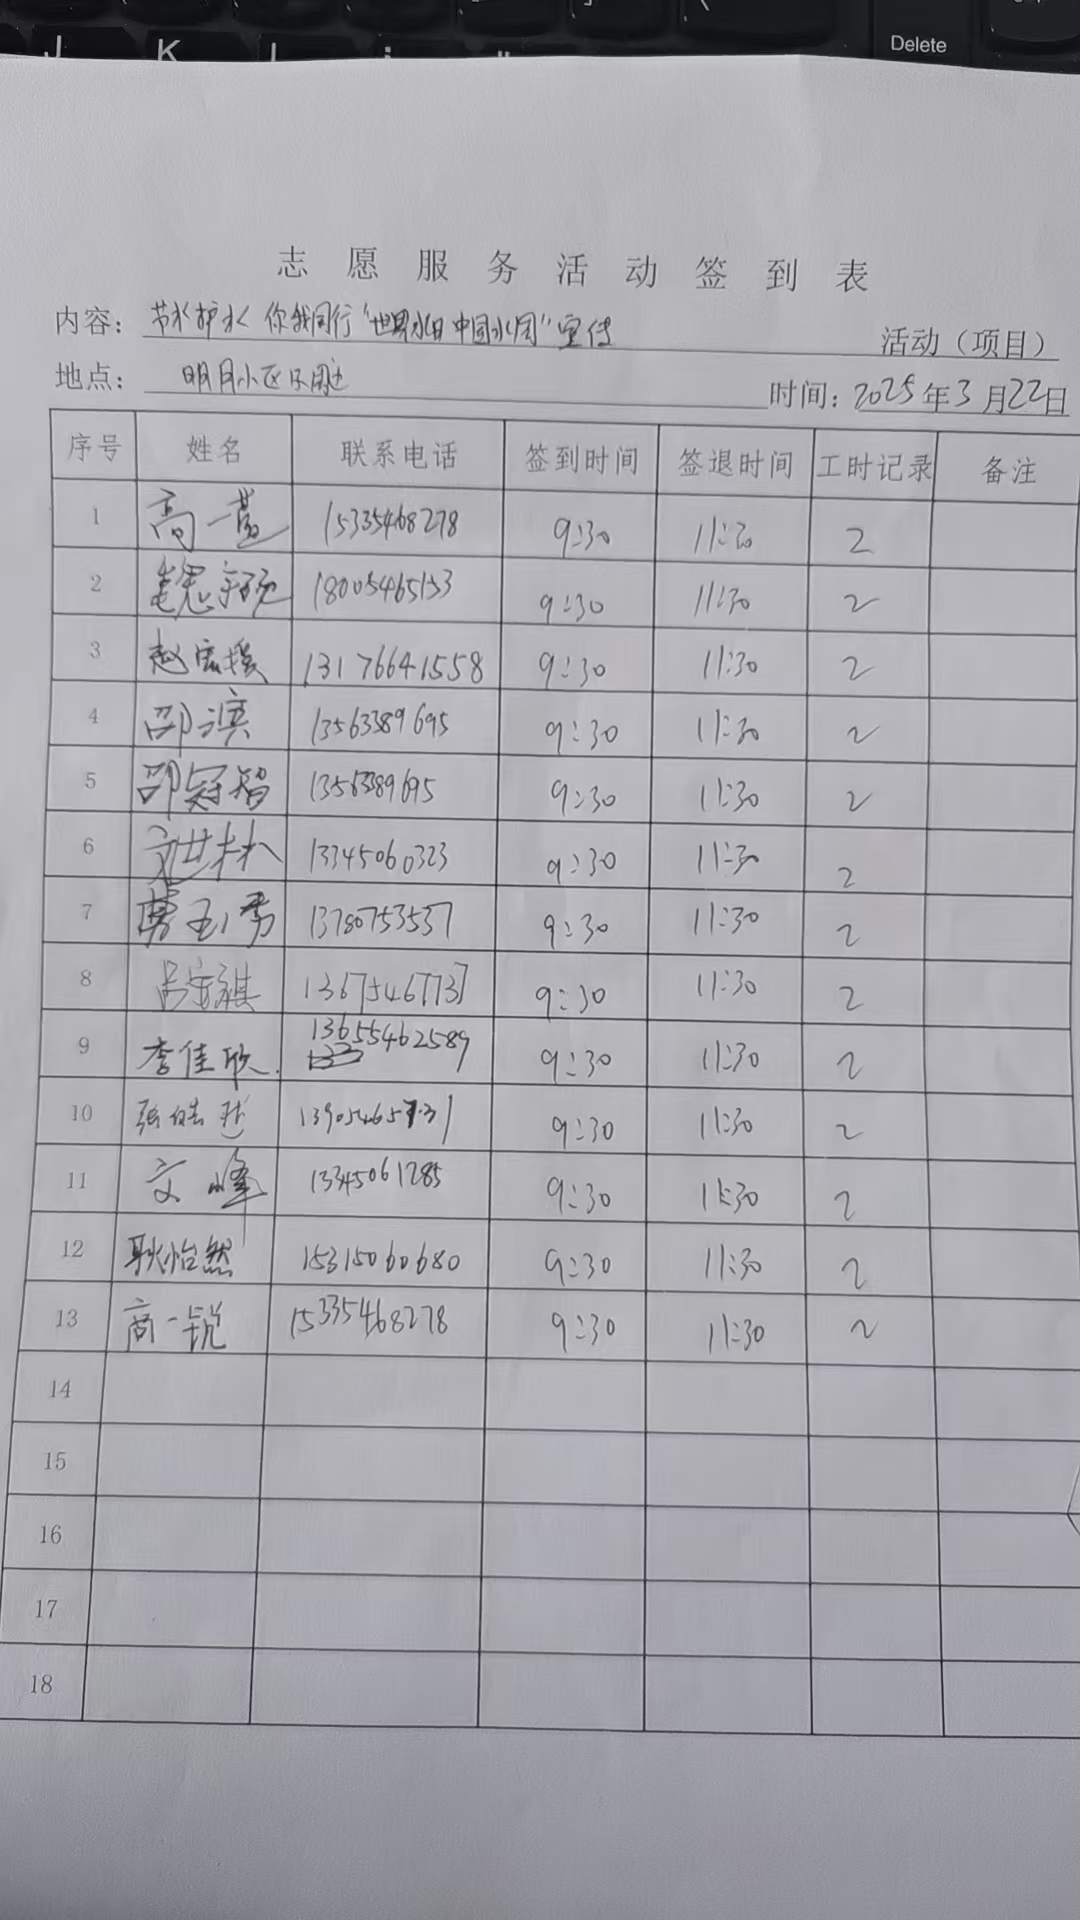 J K L ; " Delete
志愿服务活动签到表
内容：节水护水 你我同行“世界水日中国水周”宣传 活动（项目）
地点：明月小区及周边 时间：2025年3月22日
序号 姓名 联系电话 签到时间 签退时间 工时记录 备注
1 高一 15335468278 9:30 11:30 2
2 18005465153 9:30 11:30 2
3 赵宏援 13176641558 9:30 11:30 2
4 邵滨 13563389695 9:30 11:30 2
5 邵冠智 9:30 11:30 2
6 文世林 13345060323 9:30 11:30 2
7 玉秀 13780753537 9:30 11:30 2
8 吕安祺 13675467737 9:30 11:30 2
9 李佳欣 13655462589 9:30 11:30 2
10 张皓 9:30 11:30 2
11 文峰 13345061285 9:30 11:30 2
12 耿怡然 15315060680 9:30 11:30 2
13 商一锐 15335468278 9:30 11:30 2
14
15
16
17
18